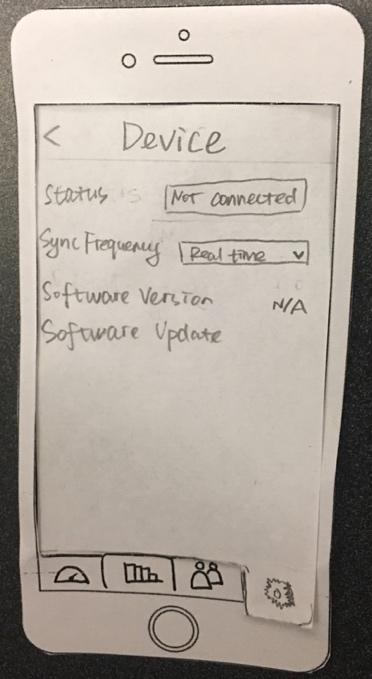 < Device
Status Not connected
Sync Frequency Real time
Software Version N/A
Software Update